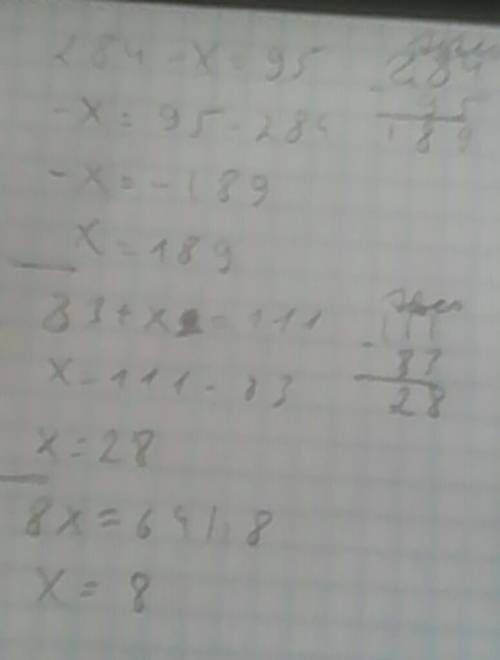 284 - x = 95
284
- 95
189
-x = 95 - 284
-x = -189
x = 189
83 + x = 111
111
- 83
28
x = 111 - 83
x = 28
8x = 64 | : 8
x = 8